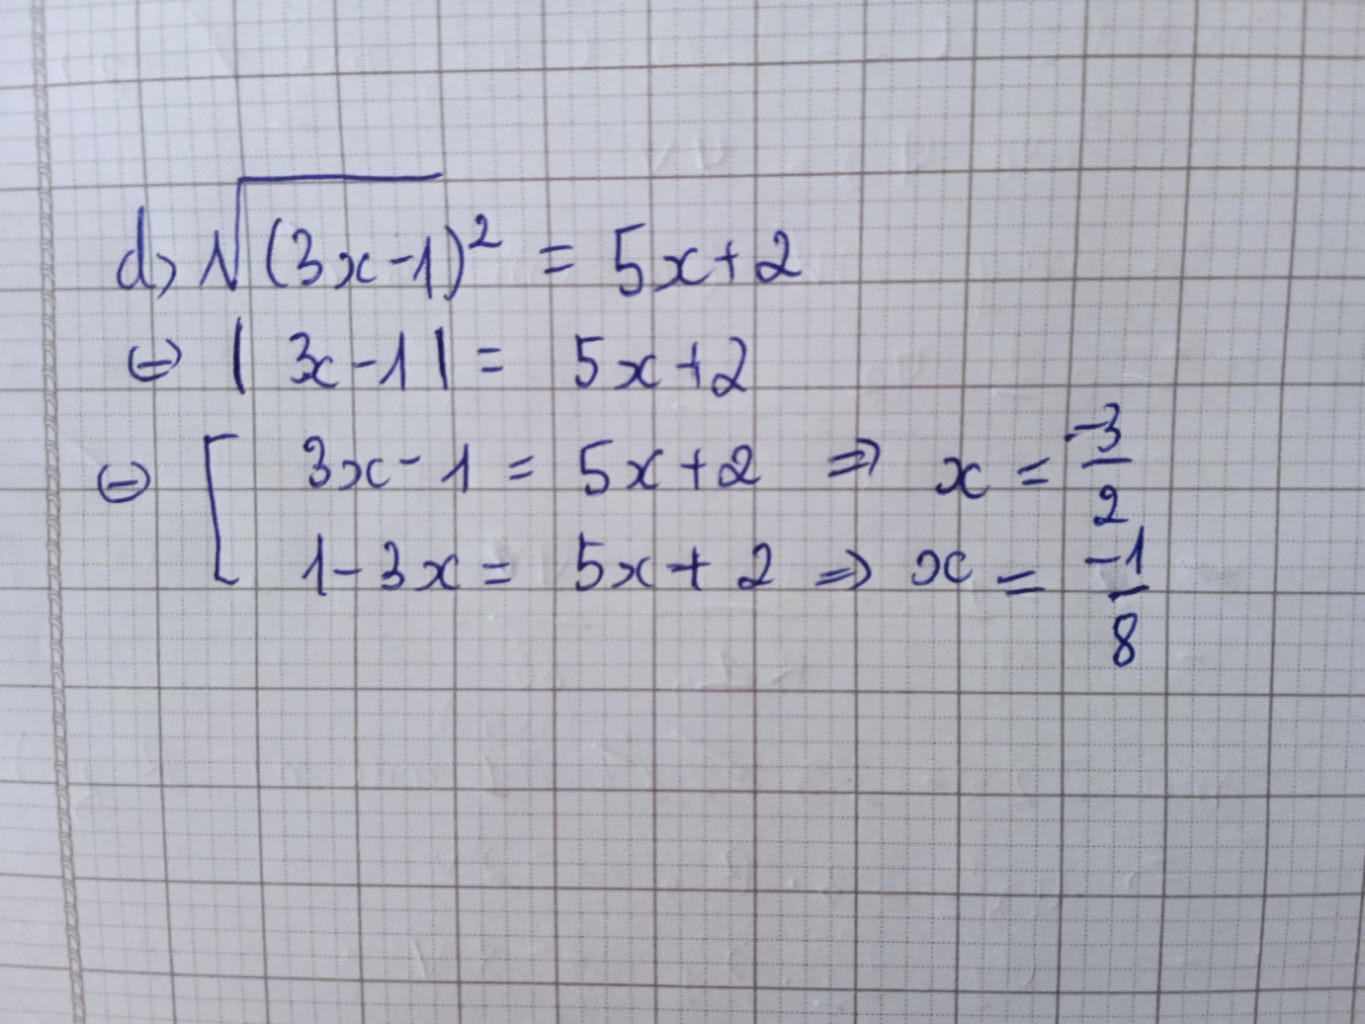 d) √(3x-1)² = 5x+2
⇔ |3x-1| = 5x+2
⇔ [ 3x-1 = 5x+2 ⇒ x = -3/2
1-3x = 5x+2 ⇒ x = -1/8